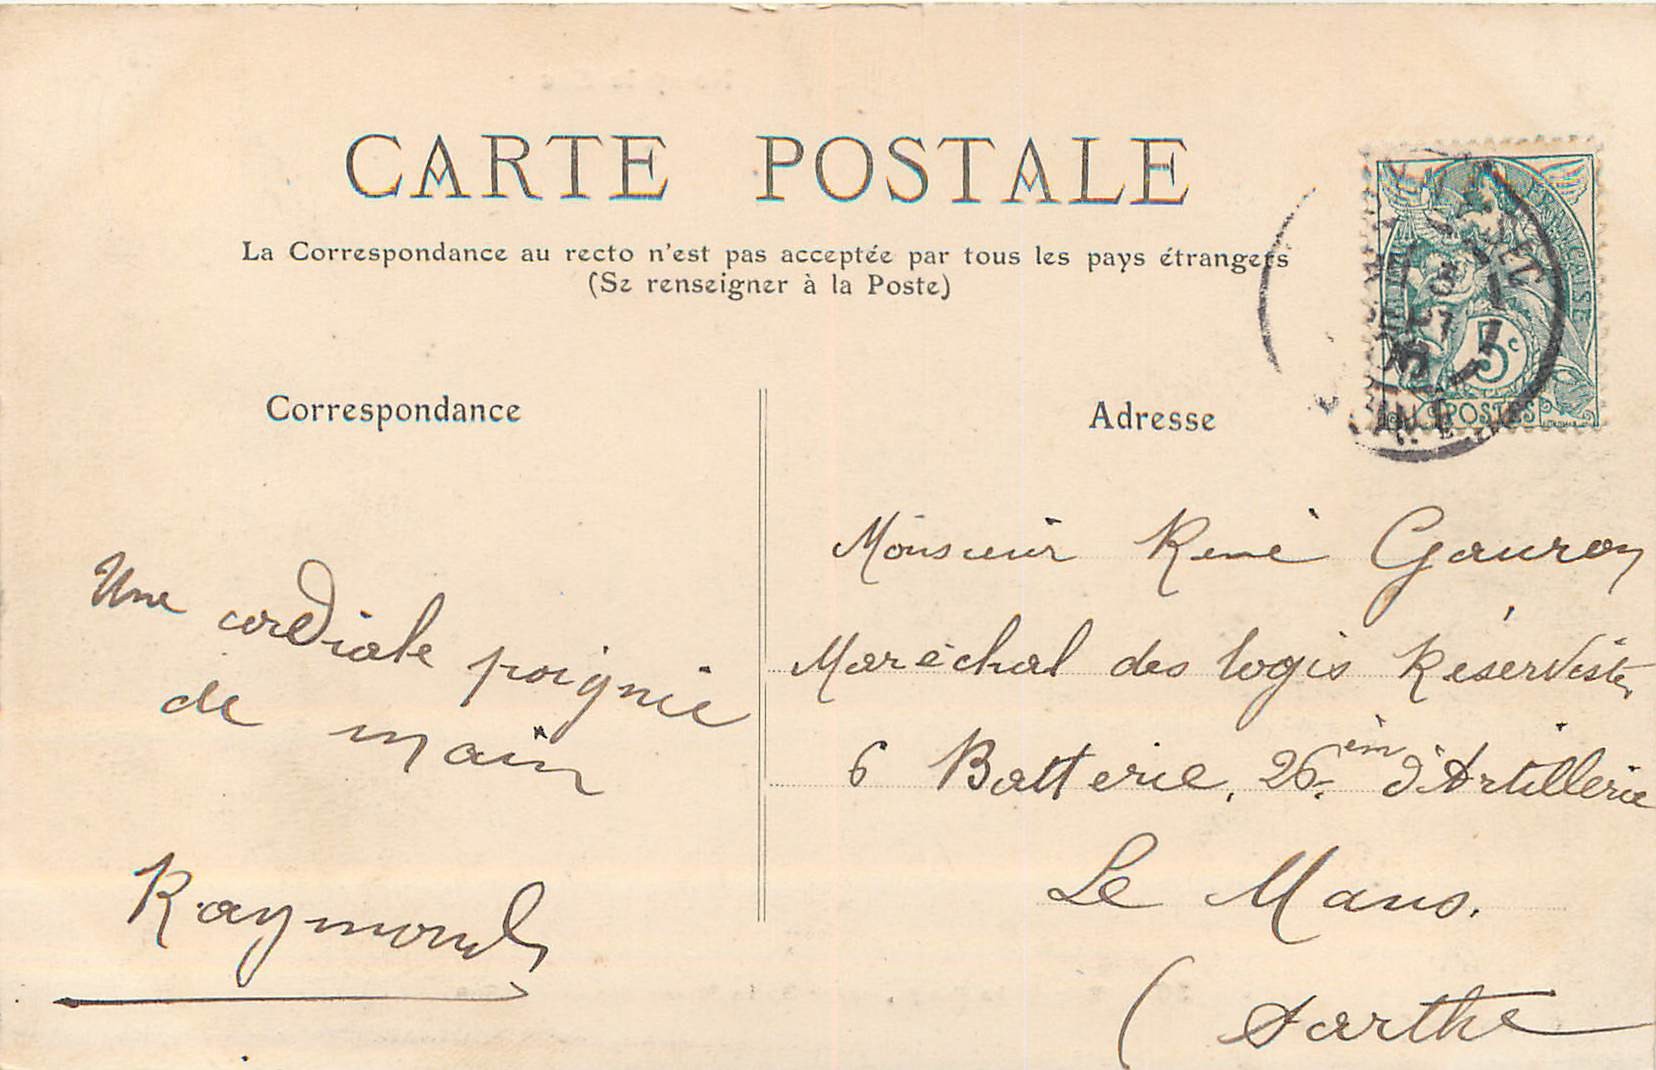 CARTE POSTALE
La Correspondance au recto n'est pas acceptée par tous les pays étrangers
(Se renseigner à la Poste)
Correspondance
Une cordiale poignée
de main
Raymond
Adresse
Monsieur René Gauron
Maréchal des logis Réserviste
6 Batterie, 26.em d'Artillerie
Le Mans.
(Sarthe
FRANÇAISE
5c
POSTES